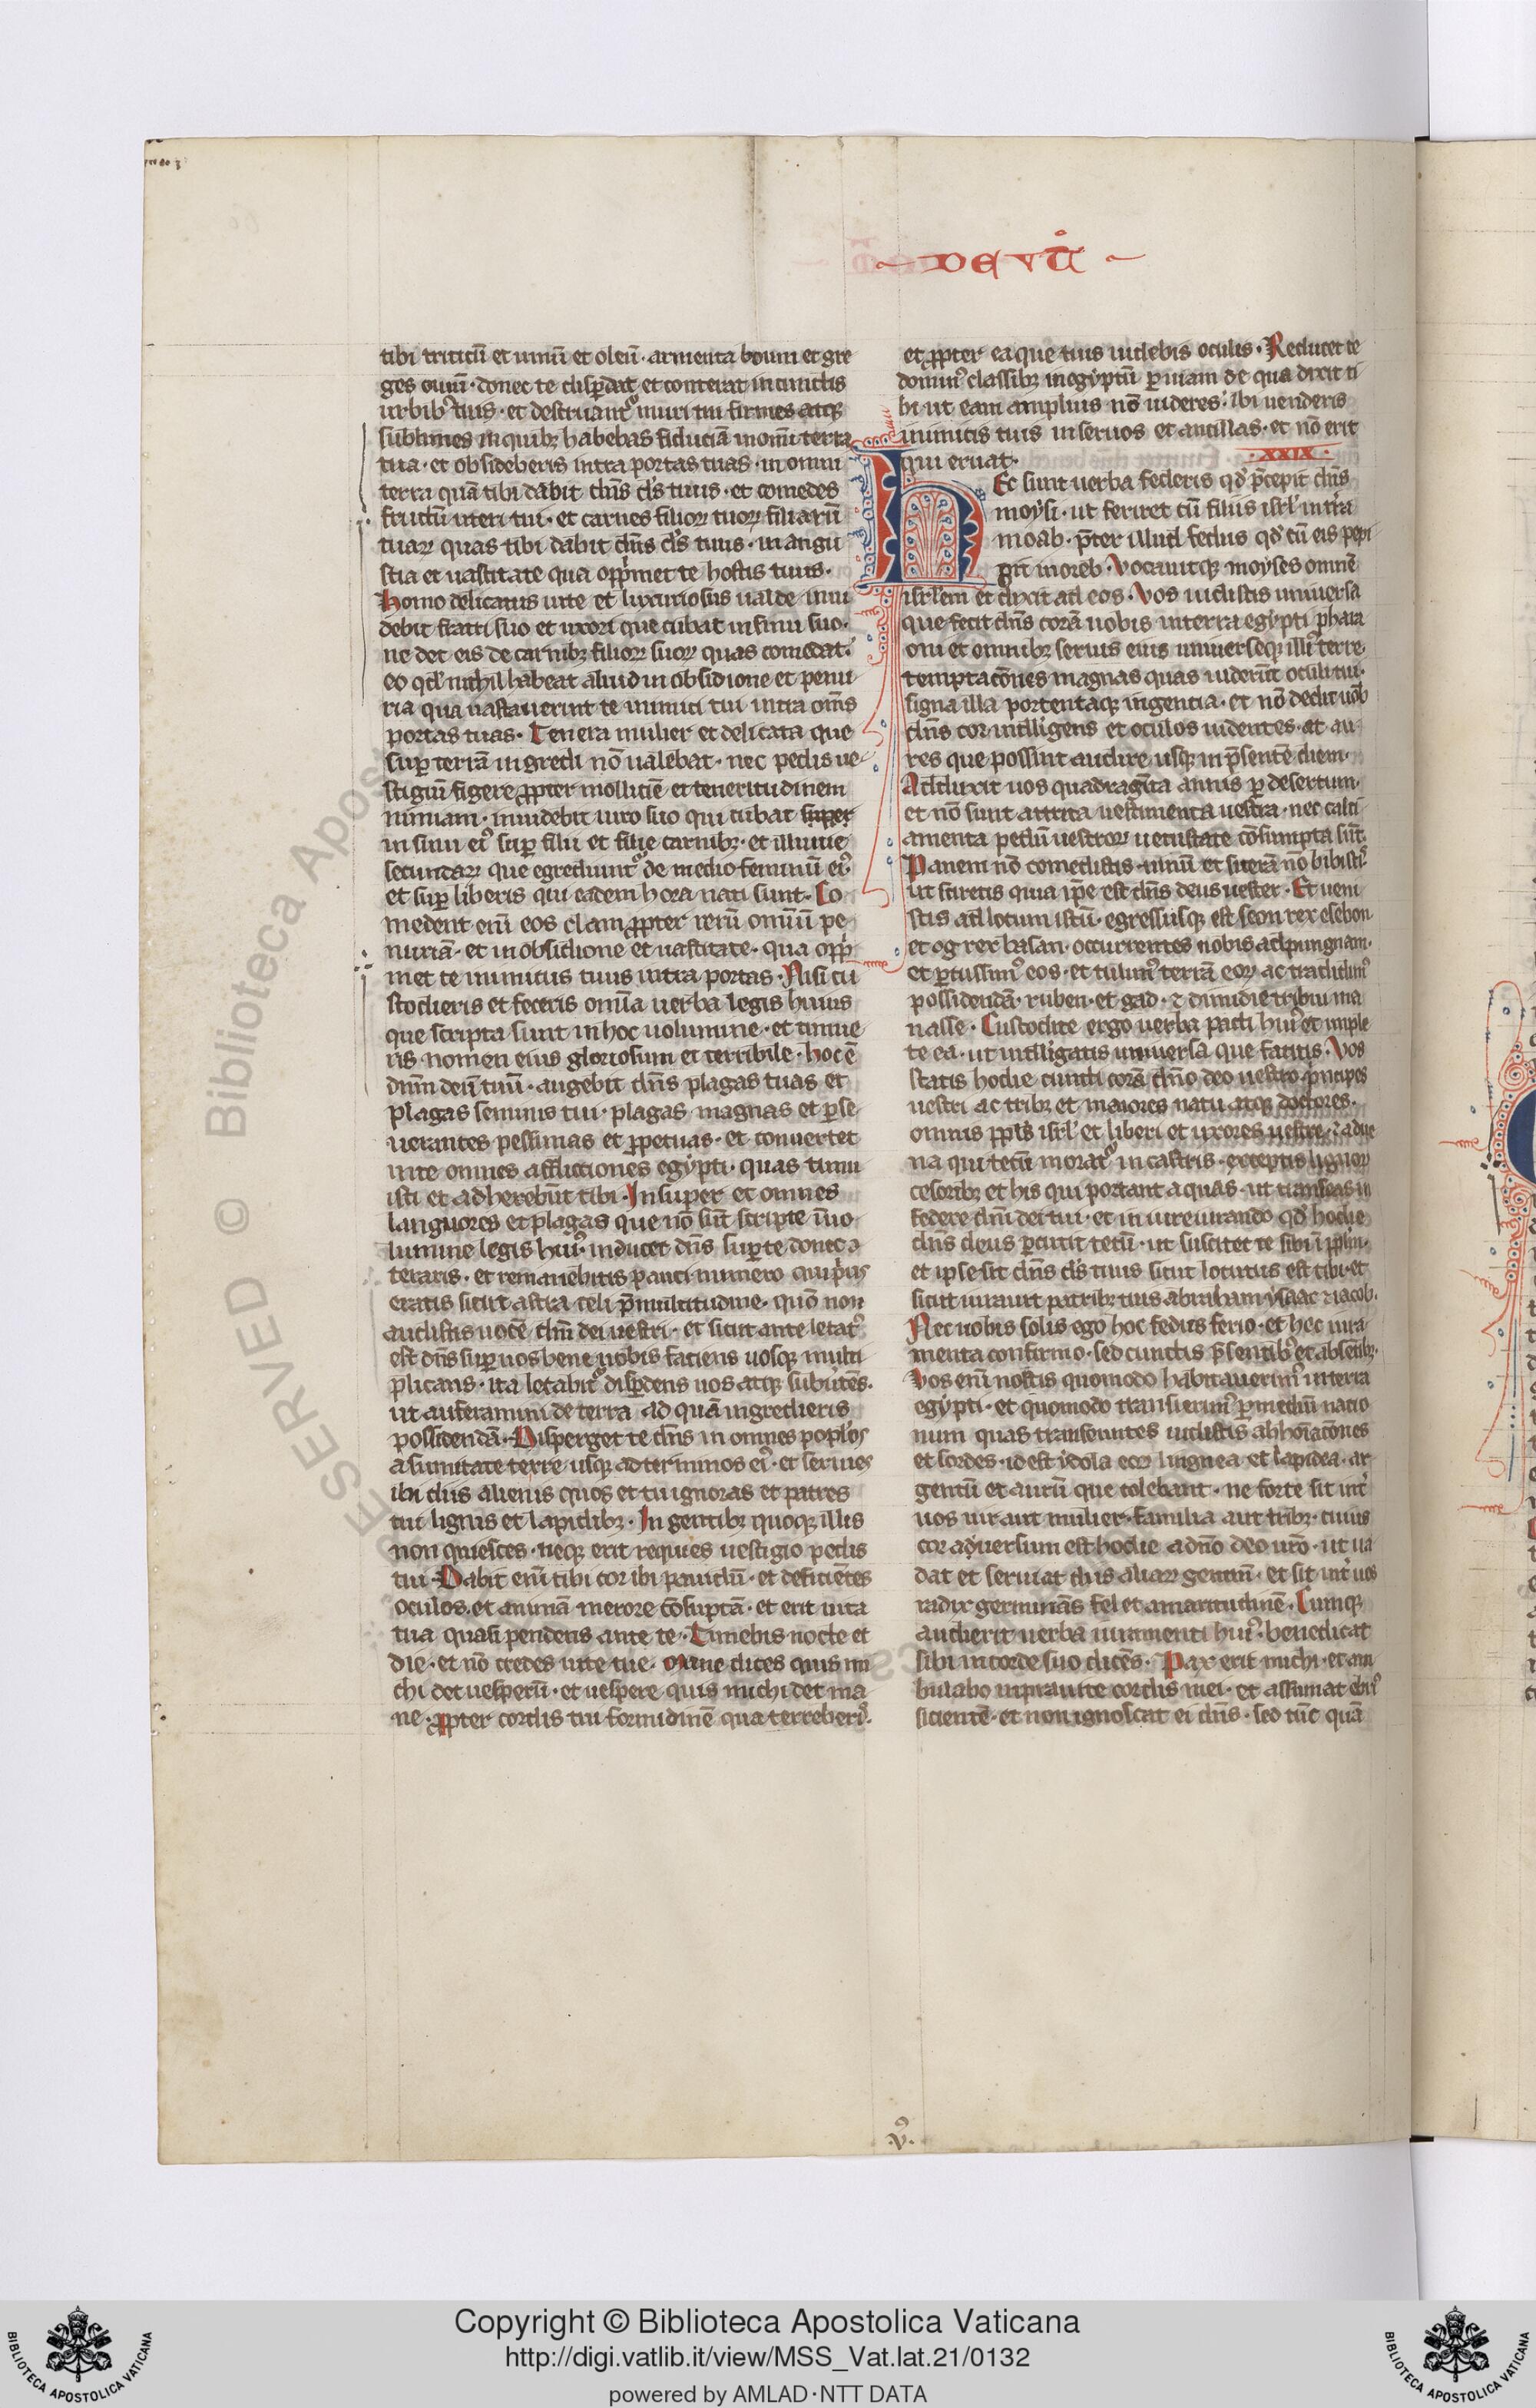 DEUT̄
tibi triticū et uinū et oleū · armenta boum et gre
ges ouiū · donec te disꝑdat et conterat in cunctis
urbibꝰ tuis · et destruantᷣ muri tui firmes atqꝫ
sublimes in quibꝫ habebas fiduciā in omī terra
tua · et obsideberis intra portas tuas · in omni
terra quā tibi dabit dn̄s ds̄ tuus · et comedes
fructū uteri tui · et carnes filioꝝ tuoꝝ filiarū
tuaꝝ quas tibi dabit dn̄s ds̄ tuus · in angu
stia et uastitate qua opp̄met te hostis tuus ·
Homo delicatus in te et luxuriosus ualde inui
debit fratri suo et uxori que cubat in sinu suo ·
ne det eis de carnibꝫ filioꝝ suoꝝ quas comedat ·
eo qd̄ nichil habeat aliud in obsidione et penu
ria qua uastauerint te inimici tui intra om̄s
portas tuas · Tenera mulier et delicata que
suꝑ terrā ingredi nō ualebat · nec pedis ue
stigiū figere ꝓpter molliciē et teneritudinem
nimiam · inuidebit uiro suo qui cubat super
in sinu eiꝰ suꝑ filii et filie carnibꝫ · et illuuie
secundaꝝ que egrediuntᷣ de medio feminū eiꝰ ·
et suꝑ liberis qui eadem hora nati sunt · Co
medent enī eos clam ꝓpter rerū omniū pe
nuriā · et in obsidione et uastitate · qua opp̄
met te inimicus tuus intra portas · Nisi cu
stodieris et feceris omīa uerba legis huius
que scripta sunt in hoc uolumine · et timue
ris nomen eius gloriosum et terribile · hoc ē
dnm̄ deū tuū · augebit dn̄s plagas tuas et
plagas seminis tui · plagas magnas et ꝑse
uerantes pessimas et ꝓpetuas · et conuertet
in te omnes afflictiones egypti · quas timu
isti et adherebūt tibi · Insuper et omnes
languores et plagas que nō sūt scripte ī uo
lumine legis huiꝰ · inducet dn̄s suꝑ te donec
teraris · et remanebitis pauci numero qui pͥus
eratis sicut astra celi p̄ multitudine · quō non
audistis uocē dn̄i dei uestri · et sicut ante letatꝰ
est dn̄s suꝑ uos bene uobis faciens uosqꝫ multi
plicans · ita letabitᷣ disꝑdens uos atqꝫ subūtēs ·
ut auferamini de terra ad quā ingredieris
possidendā · Disperget te dn̄s in omnes popl̄os
a sumitate terre usqꝫ ad terminos eiꝰ · et seruies
ibi diis alienis quos et tu ignoras et patres
tui lignis et lapidibꝫ · In gentibꝫ quoqꝫ illis
non quiesces · neqꝫ erit requies uestigio pedis
tui · Dabit enī tibi cor ibi pauidū · et deficiētes
oculos · et animā merore cōsuptā · et erit uita
tua quasi pendens ante te · Timebis nocte et
die · et nō credes uite tue · Mane dices quis mi
chi det uesperū · et uespere quis michi det ma
ne · ꝓpter cordis tui formidinē qua terreberꝭ ·
et ꝓpter ea que tuis uidebis oculis · Reducet te
dominꝰ classibꝫ in egyptū ꝑ uiam de qua dixit ti
bi ut eam amplius nō uideres · ibi uenderis
inimicis tuis in seruos et ancillas · et nō erit
qui eruat ·
· XXIX ·
hEc sunt uerba federis qd̄ p̄cepit dn̄s
moysi · ut feriret cū filiis isrl̄ in tr̄a
moab · p̄ter illud fedus qd̄ cū eis pepi
git in oreb · Vocauitqꝫ moyses omnē
isrl̄em et dixit ad eos · Vos uidistis uniuersa
que fecit dn̄s corā uobis in terra egypti phara
oni et omnibꝫ seruis eius uniuerseqꝫ illiꝰ terre ·
temptacōnes magnas quas uiderūt oculi tui ·
signa illa portentaqꝫ ingentia · et nō dedit uob̄
dn̄s cor intlligens et oculos uidentes · at au
res que possint audire usqꝫ in p̄sentē diem ·
Adduxit uos quadragīta annis ꝑ desertum ·
et nō sunt attrita uestimenta uestra · nec calci
amenta pedū uestroꝝ uetustate cōsumpta sūt ·
Panem nō comedistis · uinū et sicerā nō bibistꝭ
ut sciretis quia ip̄e est dn̄s deus uester · Et ueni
stis ad locum istū · egressusqꝫ est seon rex esebon
et og rex basan · occurrentes nobis ad pungnam ·
et ꝑcussimꝰ eos · et tulimꝰ terrā eoꝝ ac tradidimꝰ
possidendā · ruben · et gad · ⁊ dimidie tribui ma
nasse · Custodite ergo uerba pacti huiꝰ et imple
te ea · ut intlligatis uniuersa que facitis · Vos
statis hodie cuncti corā dn̄o deo uestro · p̄ncipes
uestri ac tribꝫ et maiores natu atqꝫ doctores ·
omnis ppl̄s isrl̄ et liberi et uxores uestre · ⁊ adue
na qui tecū moratᷣ in castris · exceptis lignoꝝ
cesoribꝫ et his qui portant aquas · ut transeas in
federe dn̄i dei tui · et in iureiurando qd̄ hodie
dn̄s deus ꝑcutit tecū · ut suscitet te sibi ī ppl̄m ·
et ipse sit dn̄s ds̄ tuus sicut locutus est tibi · et
sicut iurauit patribꝫ tuis abraham ysaac ⁊ iacob ·
Nec uobis solis ego hoc fedus ferio · et hec iura
menta confirmo · sed cunctis p̄sentibꝰ et absētibꝫ ·
Vos enī nostis quomodo habitauerimꝰ in terra
egypti · et quomodo transierimꝰ ꝑ mediū natio
num quas transeuntes uidistis abhoīacōnes
et sordes · id est ydola eoꝝ lingnea et lapidea · ar
gentū et aurū que colebant · ne forte sit int̄
uos uir aut mulier · familia aut tribꝫ · cuius
cor aduersum est hodie a dn̄o deo ur̄o · ut ua
dat et seruiat diis aliaꝝ gentiū · et sit int̄ uos
radix germinās fel et amaritudinē · Cumqꝫ
audierit uerba iuramenti huiꝰ · benedicat
sibi in corde suo dicēs · Pax erit michi · et am
bulabo in prauite cordis mei · et assumat ebriꝰ
sicientē · et non ignoscat ei dn̄s · sed tūc quā
.v.
Copyright © Biblioteca Apostolica Vaticana
http://digi.vatlib.it/view/MSS_Vat.lat.21/0132
powered by AMLAD·NTT DATA